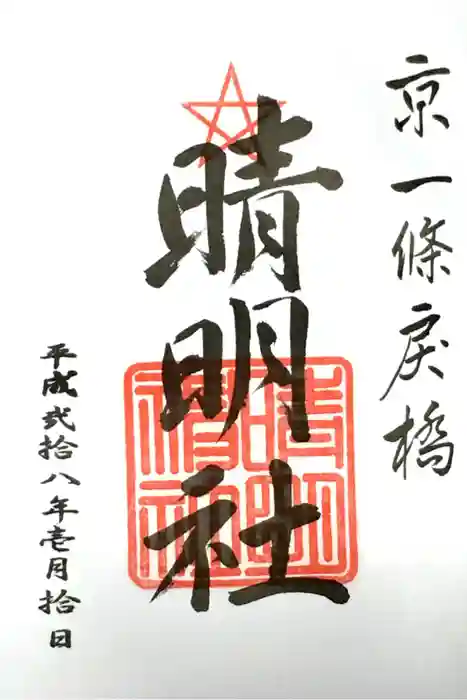 京一條戻橋
晴明社
晴明神社
平成弐拾八年壱月拾日